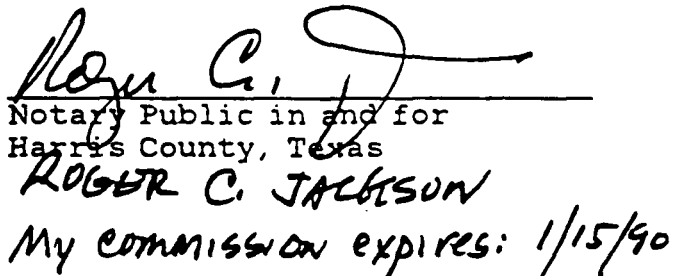 Roger C. J
Notary Public in and for
Harris County, Texas
ROGER C. JACKSON
My commission expires: 1/15/90